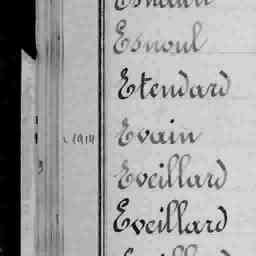 Esnoul
Etendard
1914 Evain
Eveillard
Eveillard